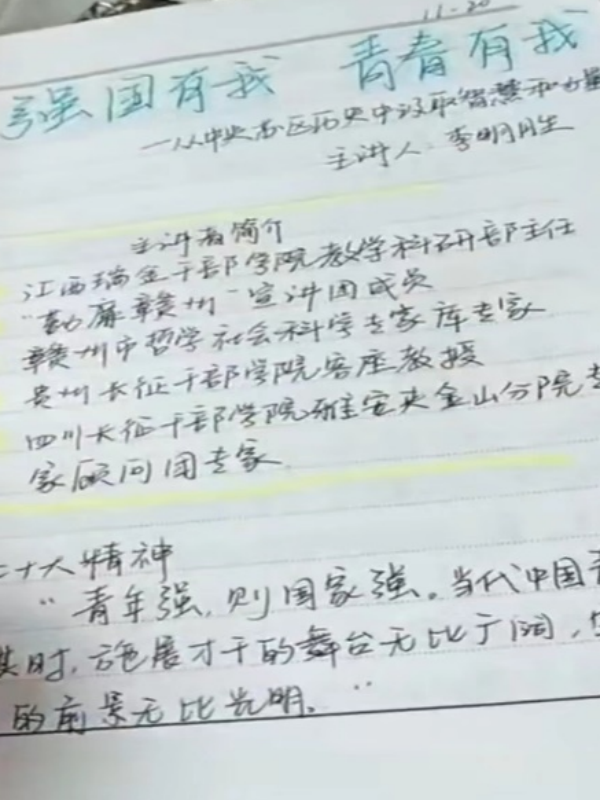 11-20
强国有我 青春有我
—从中央苏区历史中汲取智慧和力量
主讲人:李明月生
主讲者简介
江西瑞金干部学院教学科研部主任
"勤廉赣州"宣讲团成员
赣州市哲学社会科学专家库专家
贵州长征干部学院客座教授
四川长征干部学院雅安夹金山分院专
家顾问团专家
二十大精神
"青年强,则国家强。当代中国青
其时,施展才干的舞台无比广阔,
的前景无比光明。"